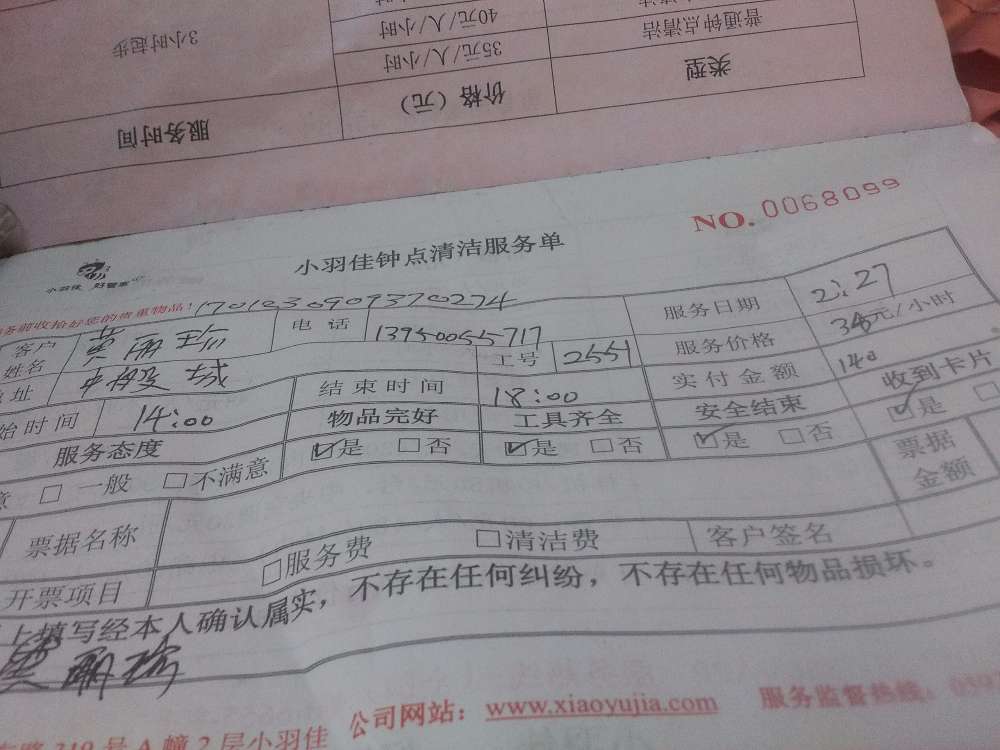 服务时间 价格（元） 类型
3小时起步 35元/人/小时 普通钟点清洁
40元/人/小时
NO.0068099
小羽佳 好管家
小羽佳钟点清洁服务单
务前收拾好您的贵重物品！1701230909370274
客户姓名 电话 13950055717 服务日期 2:27
地址 工号 2551 服务价格 35元/小时
始时间 14:00 结束时间 18:00 实付金额 140
服务态度 物品完好 工具齐全 安全结束 收到卡片
意 □ 一般 □ 不满意 ☑是 □否 ☑是 □否 ☑是 □否 ☑是 □
票据名称 票据金额
开票项目 □服务费 □清洁费 客户签名
上填写经本人确认属实，不存在任何纠纷，不存在任何物品损坏。
路319号A幢2层小羽佳 公司网站：www.xiaoyujia.com 服务监督热线：059